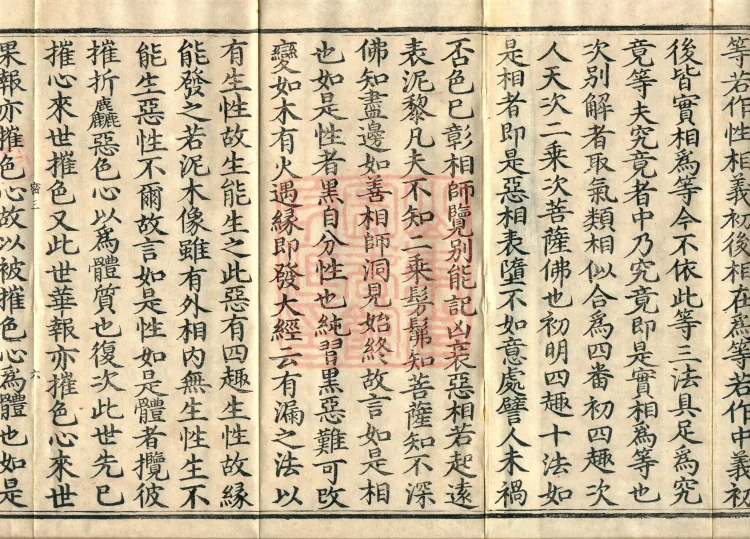 等若作性相義初後相在爲等若作中義初
後皆實相爲等今不依此等三法具足爲究
竟等夫究竟者中乃究竟即是實相爲等也
次別解者取氣類相似合爲四番初四趣次
人天次二乘次菩薩佛也初明四趣十法如
是相者即是惡相表墮不如意處譬人未禍
否色已彰相師覽別能記凶衰惡相若起遠
表泥黎凡夫不知二乘髣髴知菩薩知不深
佛知盡邊如善相師洞見始終故言如是相
也如是性者黑自分性也純習黑惡難可改
變如木有火遇緣即發大經云有漏之法以
有生性故生能生之此惡有四趣生性故緣
能發之若泥木像雖有外相內無生性生不
能生惡性不爾故言如是性如是體者攬彼
摧折麤惡色心以爲體質也復次此世先已
摧心來世摧色又此世華報亦摧色心來世
三 六
果報亦摧色心故以被摧色心爲體也如是